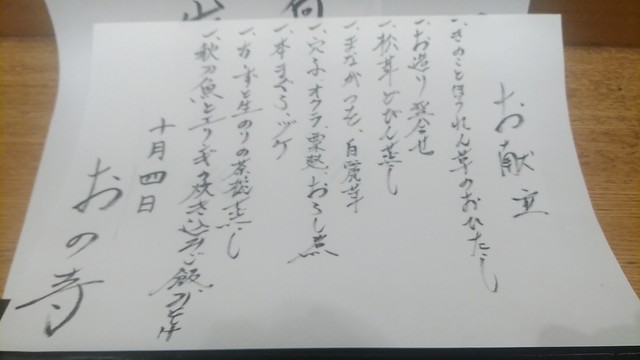 お献立
一、きのことほうれん草のおひたし
一、お造り盛合せ
一、松茸どびん蒸し
一、まながつお、白髪
一、穴子、オクラ、粟麩、おろし煮
一、本まぐろ、ヅケ
一、カニと生のりの茶碗蒸し
一、秋刀魚とエリンギの炊き込みご飯
十月四日
おの寺